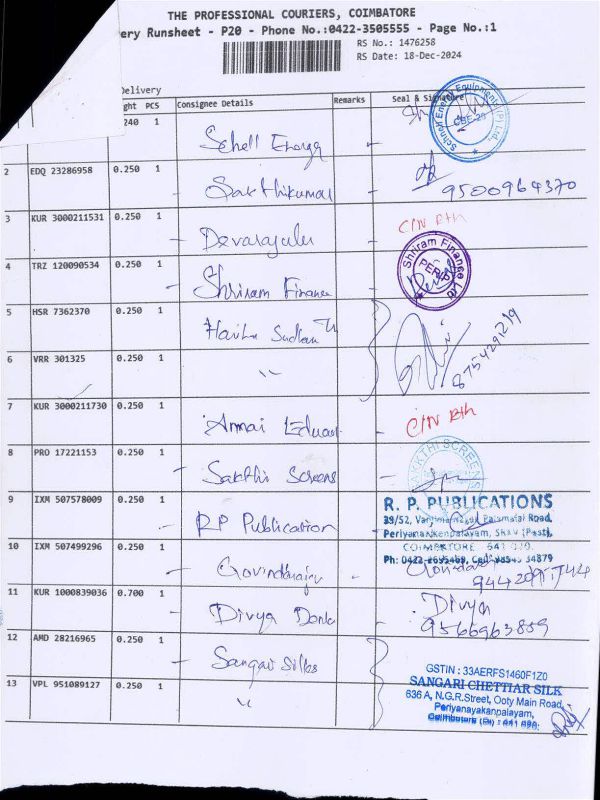 THE PROFESSIONAL COURIERS, COIMBATORE
ery Runsheet - P20 - Phone No.:0422-3505555 - Page No.:1
RS No.: 1476258
RS Date: 18-Dec-2024
Delivery
ght PCS Consignee Details Remarks Seal & Signature
240 1 Schell Energy
Schnell Energy Equipments (P) Ltd.,
CBE-29
2 EDQ 23286958 0.250 1 Sakthikumar 9500964370
3 KUR 3000211531 0.250 1 Devarajulu C/N Rth
4 TRZ 120090534 0.250 1 Shriram Finance
Shriram Finance Ltd
PERIP
5 HSR 7362370 0.250 1
6 VRR 301325 0.250 1 " 8754291219
7 KUR 3000211730 0.250 1 Annai C/N Rth
8 PRO 17221153 0.250 1 Sakthi Screens
SAKKTHI SCREENS
9 IXM 507578009 0.250 1 RP Publication
R. P. PUBLICATIONS
39/52, Road,
Periyanaickenpalayam, (Post),
COIMBATORE - 641 020.
Ph: 0422-2695469, 34879
10 IXM 507499296 0.250 1 Govindharaju
11 KUR 1000839036 0.700 1 Divya Divya
9566963859
12 AMD 28216965 0.250 1 Sangari Silks
GSTIN : 33AERFS1460F1Z0
SANGARI CHETTIAR SILK
636 A, N.G.R.Street, Ooty Main Road,
Periyanayakanpalayam,
13 VPL 951089127 0.250 1 "